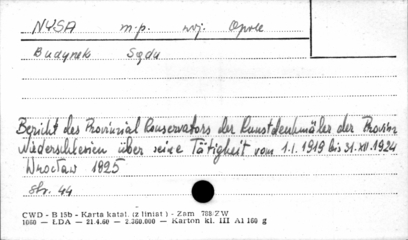 NYSA m.p. woj. Opole
Budynek Sądu
Bericht des Provinzial Konservators der Kunstdenkmäler der Provinz
Niederschlesien über seine Tätigkeit vom 1.I.1919 bis 31.XII.1924
Wrocław 1925
str. 44
CWD - B 15b - Karta katal. (z liniat.) - Zam 788/ZW
1080 — ŁDA — 21.4.60 — 2.360.000 — Karton kl. III A1 160 g